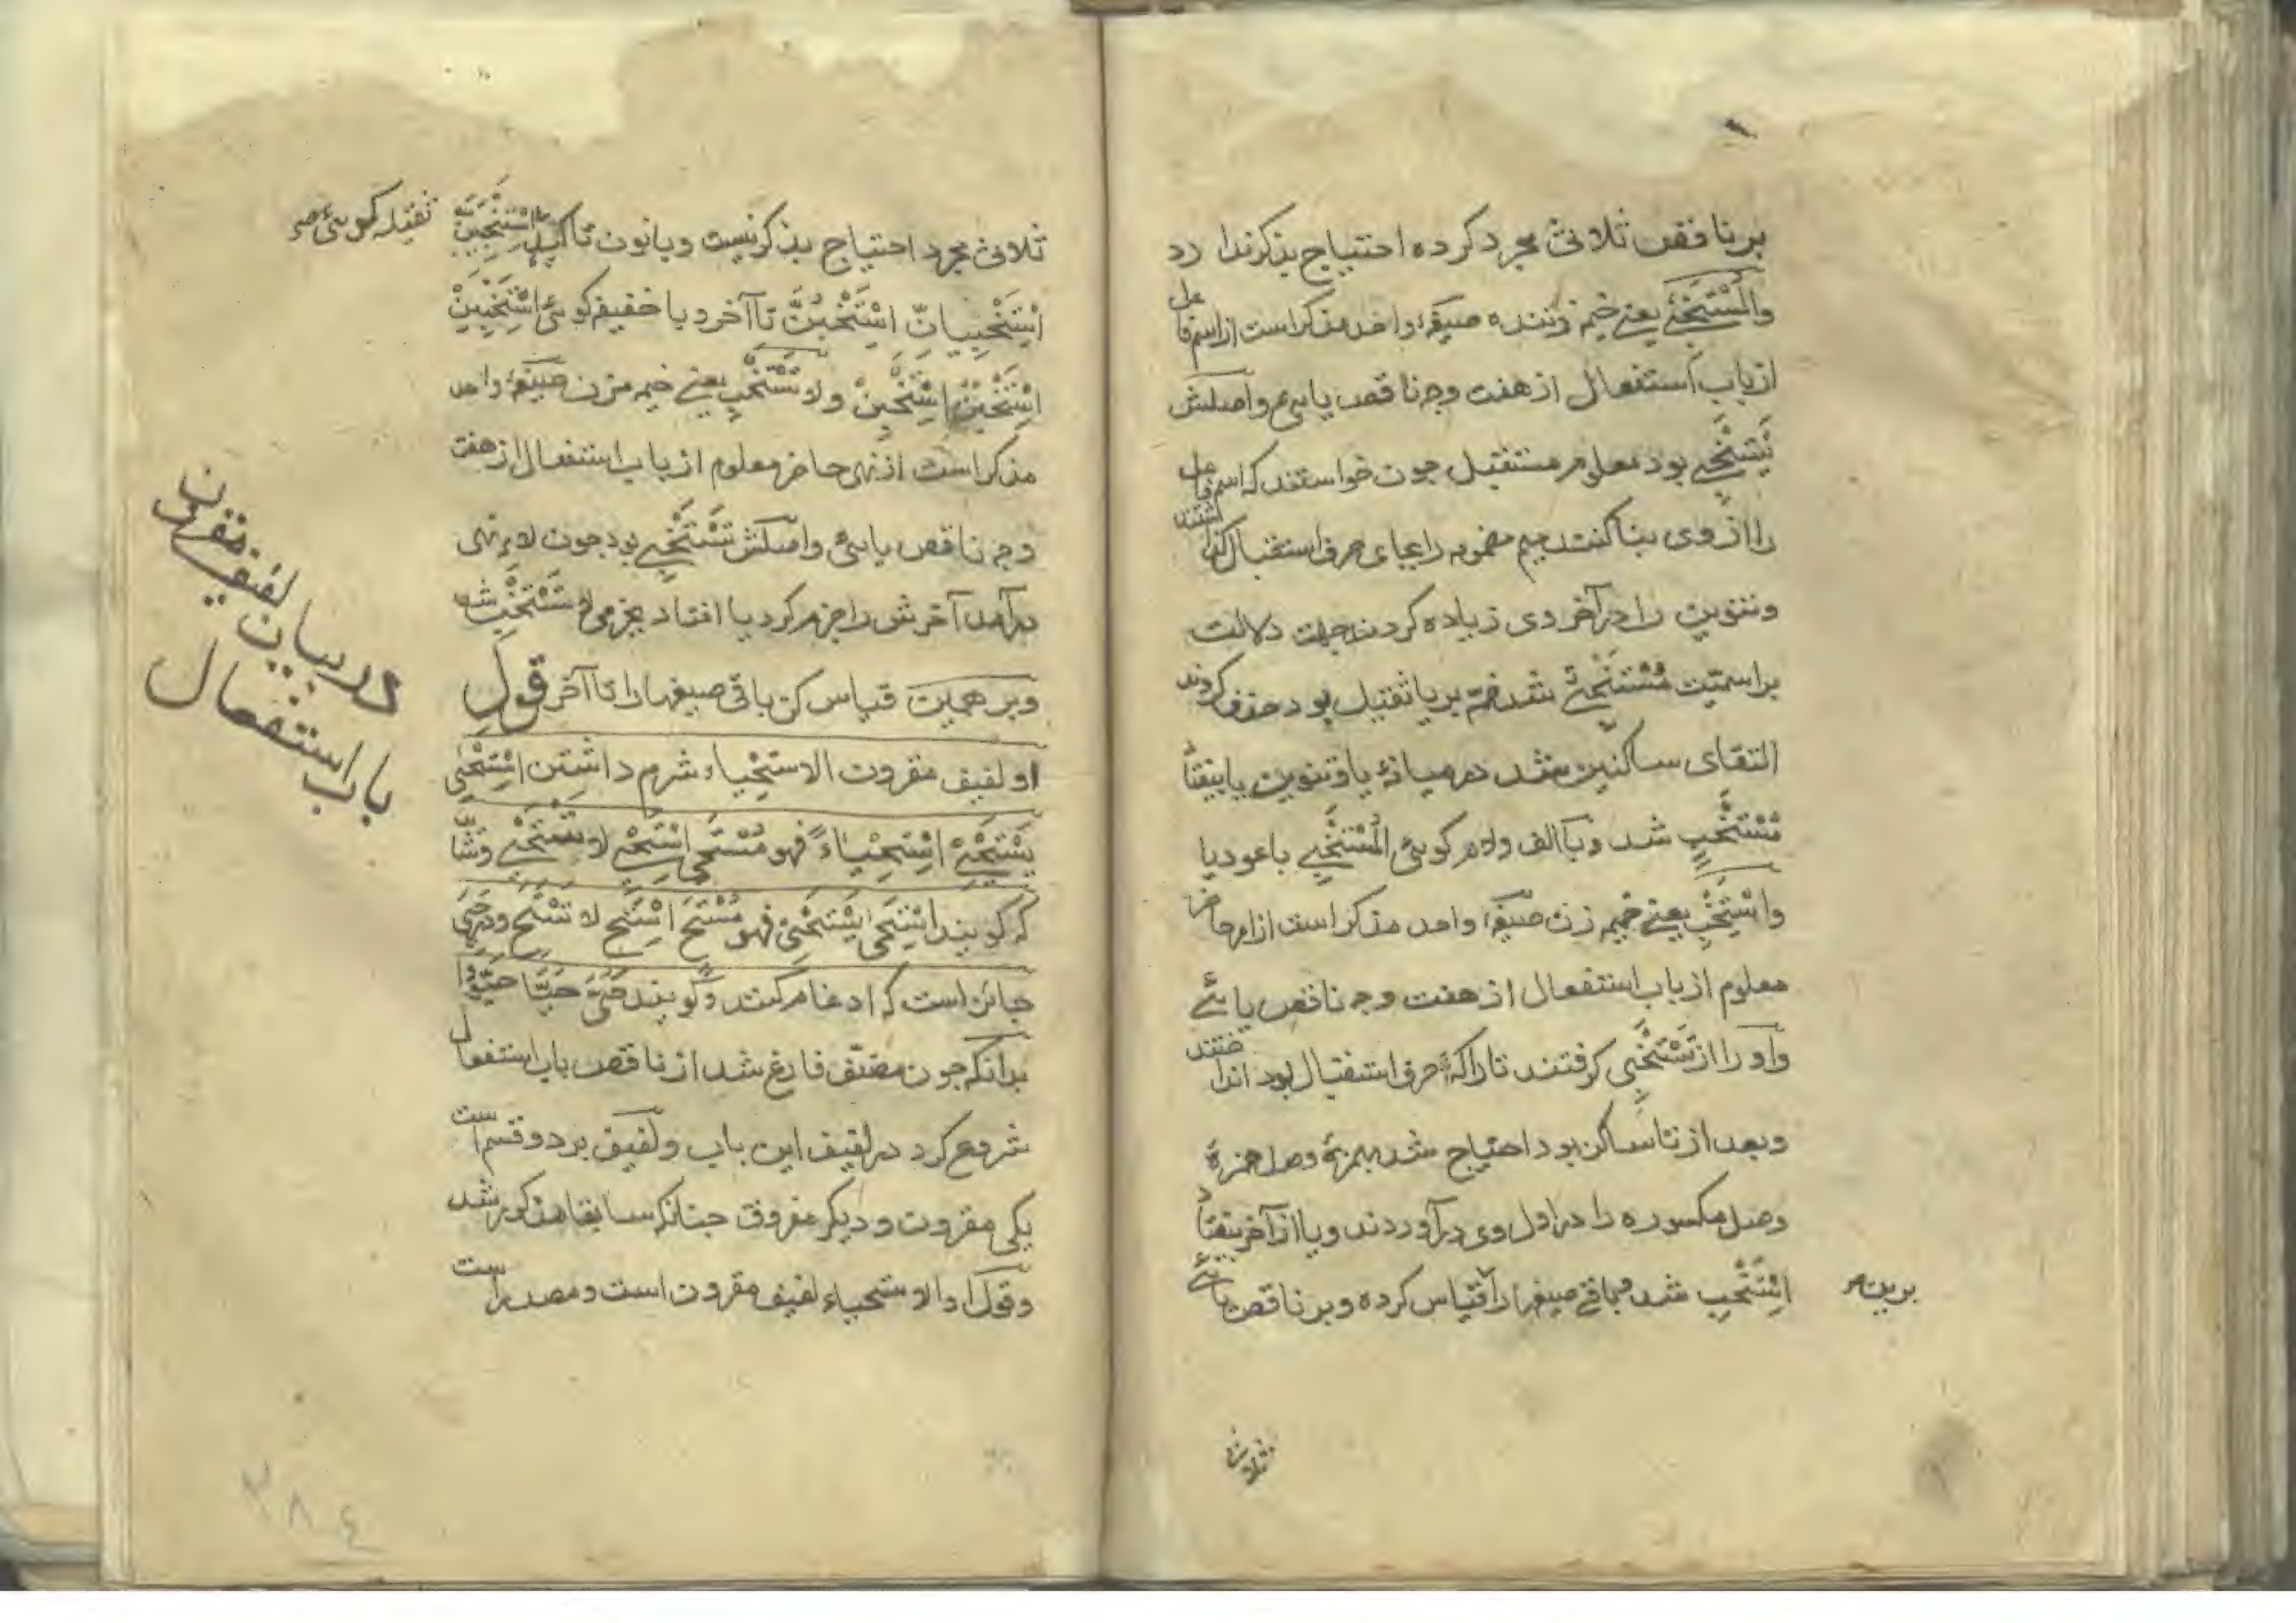 بر ناقص ثلاثی مجرد کرده احتیاج بذکر ندا رد
والمُسْتَخْبِی یعنی خیم زننده صیغهٔ واحد مذکر است از اسم فاعل
از باب استفعال از هفت وجه ناقص یایی و اصلش
یَسْتَخْبِی بود معلوم مستقبل چون خواستند که اسم فاعل
را از وی بنا کنند میم مضمومه را بجای حرف استقبال
وتنوین را در آخر وی زیاده کردند جهت دلالت
بر اسمیّت مُسْتَخْبِیٌ شد ضمّه بر یا ثقیل بود حذف کردند
التقای ساکنین شد در میانهٔ یا و تنوین یا بیفتاد
مُسْتَخْبٍ شد وبا الف ولام کویی المُسْتَخْبِی باعود یا
واسْتَخْبِ یعنی خیم زن صیغهٔ واحد مذکر است از امر حاضر
معلوم از باب استفعال از هفت وجه ناقص یائے
واو را از تَسْتَخْبِی کرفتند تا را که حرف استقبال بود انداختند
وبعد از تا ساکن بود احتیاج شد بهمزهٔ وصل همزهٔ
وصل مکسوره را در اول وی در آوردند ویا از آخر بیفتاد
اسْتَخْبِ شد وباقی صیغها را قیاس کرده وبر ناقص یائے
برین
ثلاثی
ثلاثی مجرد احتیاج بذکر نیست وبا نون تاکید اسْتَخْبِیَنَّ
ثقیله کویی
اسْتَخْبِیَانِّ اسْتَخْبُنَّ تا آخر وبا خفیفه کویی اسْتَخْبِیَنْ
اسْتَخْبُنْ اسْتَخْبِنْ ولا تَسْتَخْبِ یعنی خیمه مزن صیغهٔ واحد
مذکر است از نهی حاضر معلوم از باب استفعال از هفت
وجه ناقص یایی واصلش تَسْتَخْبِی بود چون لای نهی
درآمد آخرش را جزم کرد یا افتاد بجزمی لا تَسْتَخْبِ شد
وبر همین قیاس کن باقی صیغها را تا آخر قول
او لفیف مقرون الاستحیاء شرم داشتن اسْتَحْیَی
یَسْتَحْیِی اسْتِحْیَاءً فهو مُسْتَحْیٍ اسْتَحْیِ لا تَسْتَحْیِ وشا
که کویند اسْتَحَی یَسْتَحِی فهو مُسْتَحٍ اسْتَحِ لا تَسْتَحِ ودر حَیَی
جائز است که ادغام کنند وکویند حَیَّ حَیَّا حَیُّوا
بدانکه چون مصنّف فارغ شد از ناقص باب استفعال
شروع کرد در لفیف این باب ولفیف بر دو قسم است
یکی مقرون ودیکر مفروق چنانکه سابقا مذکور شد
وقول او الاستحیاء لفیف مقرون است ومصدر است
در بیان لفیف مقرون
باب استفعال
٣٨٤